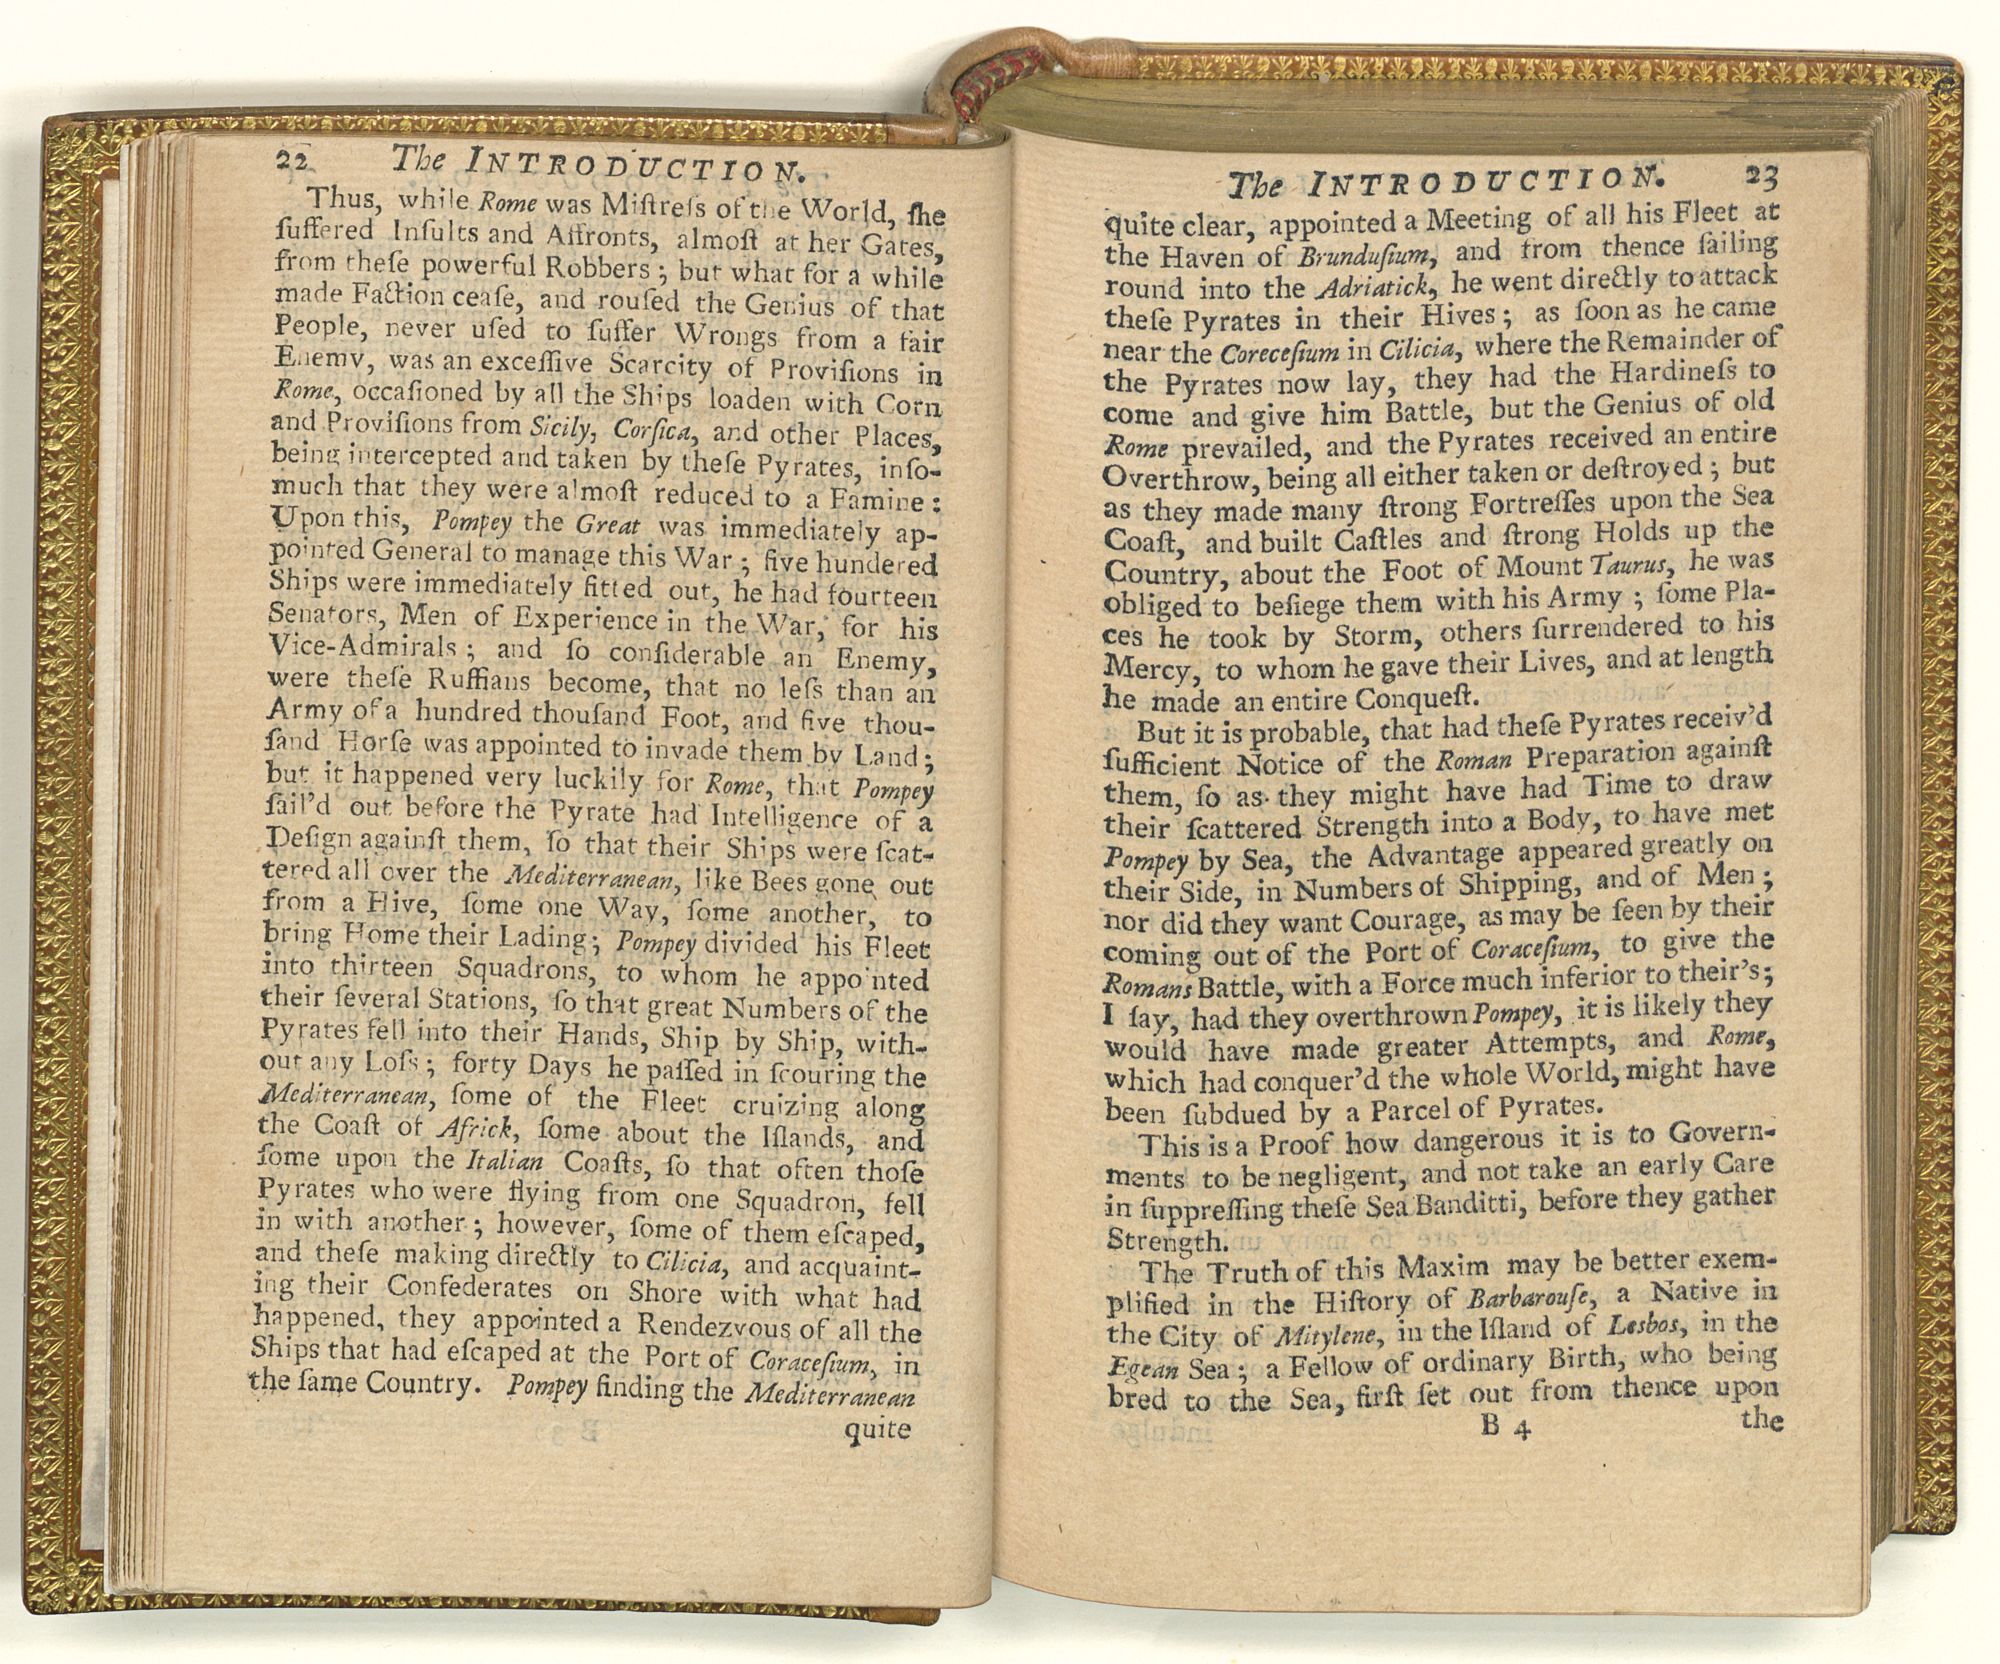 22 The INTRODUCTION.
Thus, while Rome was Miſtreſs of the World, ſhe
ſuffered Inſults and Affronts, almoſt at her Gates,
from theſe powerful Robbers; but what for a while
made Faction ceaſe, and rouſed the Genius of that
People, never uſed to ſuffer Wrongs from a fair
Enemy, was an exceſſive Scarcity of Proviſions in
Rome, occaſioned by all the Ships loaden with Corn
and Proviſions from Sicily, Corſica, and other Places,
being intercepted and taken by theſe Pyrates, inſo-
much that they were almoſt reduced to a Famine:
Upon this, Pompey the Great was immediately ap-
pointed General to manage this War; five hundered
Ships were immediately fitted out, he had fourteen
Senators, Men of Experience in the War, for his
Vice-Admirals; and ſo conſiderable an Enemy,
were theſe Ruffians become, that no leſs than an
Army of a hundred thouſand Foot, and five thou-
ſand Horſe was appointed to invade them by Land;
but it happened very luckily for Rome, that Pompey
ſail'd out before the Pyrate had Intelligence of a
Deſign againſt them, ſo that their Ships were ſcat-
tered all over the Mediterranean, like Bees gone out
from a Hive, ſome one Way, ſome another, to
bring Home their Lading; Pompey divided his Fleet
into thirteen Squadrons, to whom he appointed
their ſeveral Stations, ſo that great Numbers of the
Pyrates fell into their Hands, Ship by Ship, with-
out any Loſs; forty Days he paſſed in ſcouring the
Mediterranean, ſome of the Fleet cruizing along
the Coaſt of Africk, ſome about the Iſlands, and
ſome upon the Italian Coaſts, ſo that often thoſe
Pyrates who were flying from one Squadron, fell
in with another; however, ſome of them eſcaped,
and theſe making directly to Cilicia, and acquaint-
ing their Confederates on Shore with what had
happened, they appointed a Rendezvous of all the
Ships that had eſcaped at the Port of Coraceſium, in
the ſame Country. Pompey finding the Mediterranean
quite
The INTRODUCTION. 23
quite clear, appointed a Meeting of all his Fleet at
the Haven of Brunduſium, and from thence ſailing
round into the Adriatick, he went directly to attack
theſe Pyrates in their Hives; as ſoon as he came
near the Coreceſium in Cilicia, where the Remainder of
the Pyrates now lay, they had the Hardineſs to
come and give him Battle, but the Genius of old
Rome prevailed, and the Pyrates received an entire
Overthrow, being all either taken or deſtroyed; but
as they made many ſtrong Fortreſſes upon the Sea
Coaſt, and built Caſtles and ſtrong Holds up the
Country, about the Foot of Mount Taurus, he was
obliged to beſiege them with his Army; ſome Pla-
ces he took by Storm, others ſurrendered to his
Mercy, to whom he gave their Lives, and at length
he made an entire Conqueſt.
But it is probable, that had theſe Pyrates receiv'd
ſufficient Notice of the Roman Preparation againſt
them, ſo as they might have had Time to draw
their ſcattered Strength into a Body, to have met
Pompey by Sea, the Advantage appeared greatly on
their Side, in Numbers of Shipping, and of Men;
nor did they want Courage, as may be ſeen by their
coming out of the Port of Coraceſium, to give the
Romans Battle, with a Force much inferior to their's;
I ſay, had they overthrown Pompey, it is likely they
would have made greater Attempts, and Rome,
which had conquer'd the whole World, might have
been ſubdued by a Parcel of Pyrates.
This is a Proof how dangerous it is to Govern-
ments to be negligent, and not take an early Care
in ſuppreſſing theſe Sea Banditti, before they gather
Strength.
The Truth of this Maxim may be better exem-
plified in the Hiſtory of Barbarouſe, a Native in
the City of Mitylene, in the Iſland of Lesbos, in the
Egean Sea; a Fellow of ordinary Birth, who being
bred to the Sea, firſt ſet out from thence upon
B 4 the